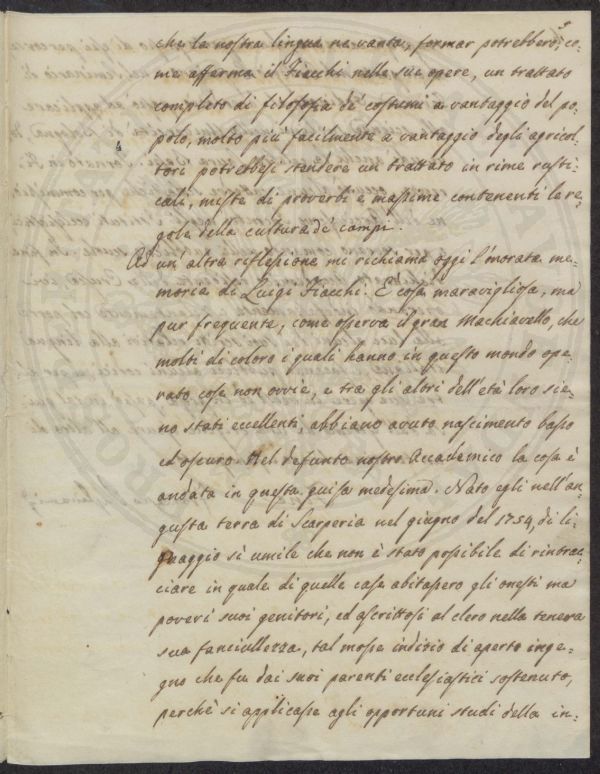 che la nostra lingua ne vanta, formar potrebbero, co-
me afferma il Fiacchi nelle sue opere, un trattato
completo di filosofia de' costumi a vantaggio del po-
polo, molto più facilmente a vantaggio degli agricol-
tori potrebbesi stendere un trattato in rime rusti-
cali, miste di proverbi e massime contenenti le re-
gole della cultura de' campi.
Ad un'altra riflessione mi richiama oggi l'onorata me-
moria di Luigi Fiacchi. E' cosa maravigliosa, ma
pur frequente, come osserva il gran Machiavello, che
molti di coloro i quali hanno in questo mondo ope-
rato cose non ovvie, e tra gli altri dell'età loro sie-
no stati eccellenti, abbiano avuto nascimento basso
ed oscuro. Nel defunto nostro Accademico la cosa è
andata in questa guisa medesima. Nato egli nell'an-
gusta terra di Scarperia nel giugno del 1754, di li-
gnaggio sì umile che non è stato possibile di rintrac-
ciare in quale di quelle case abitassero gli onesti ma
poveri suoi genitori, ed ascrittosi al clero nella tenera
sua fanciullezza, tal mosse indizio di aperto inge-
gno che fu dai suoi parenti ecclesiastici sostenuto,
perchè si applicasse agli opportuni studi della in-